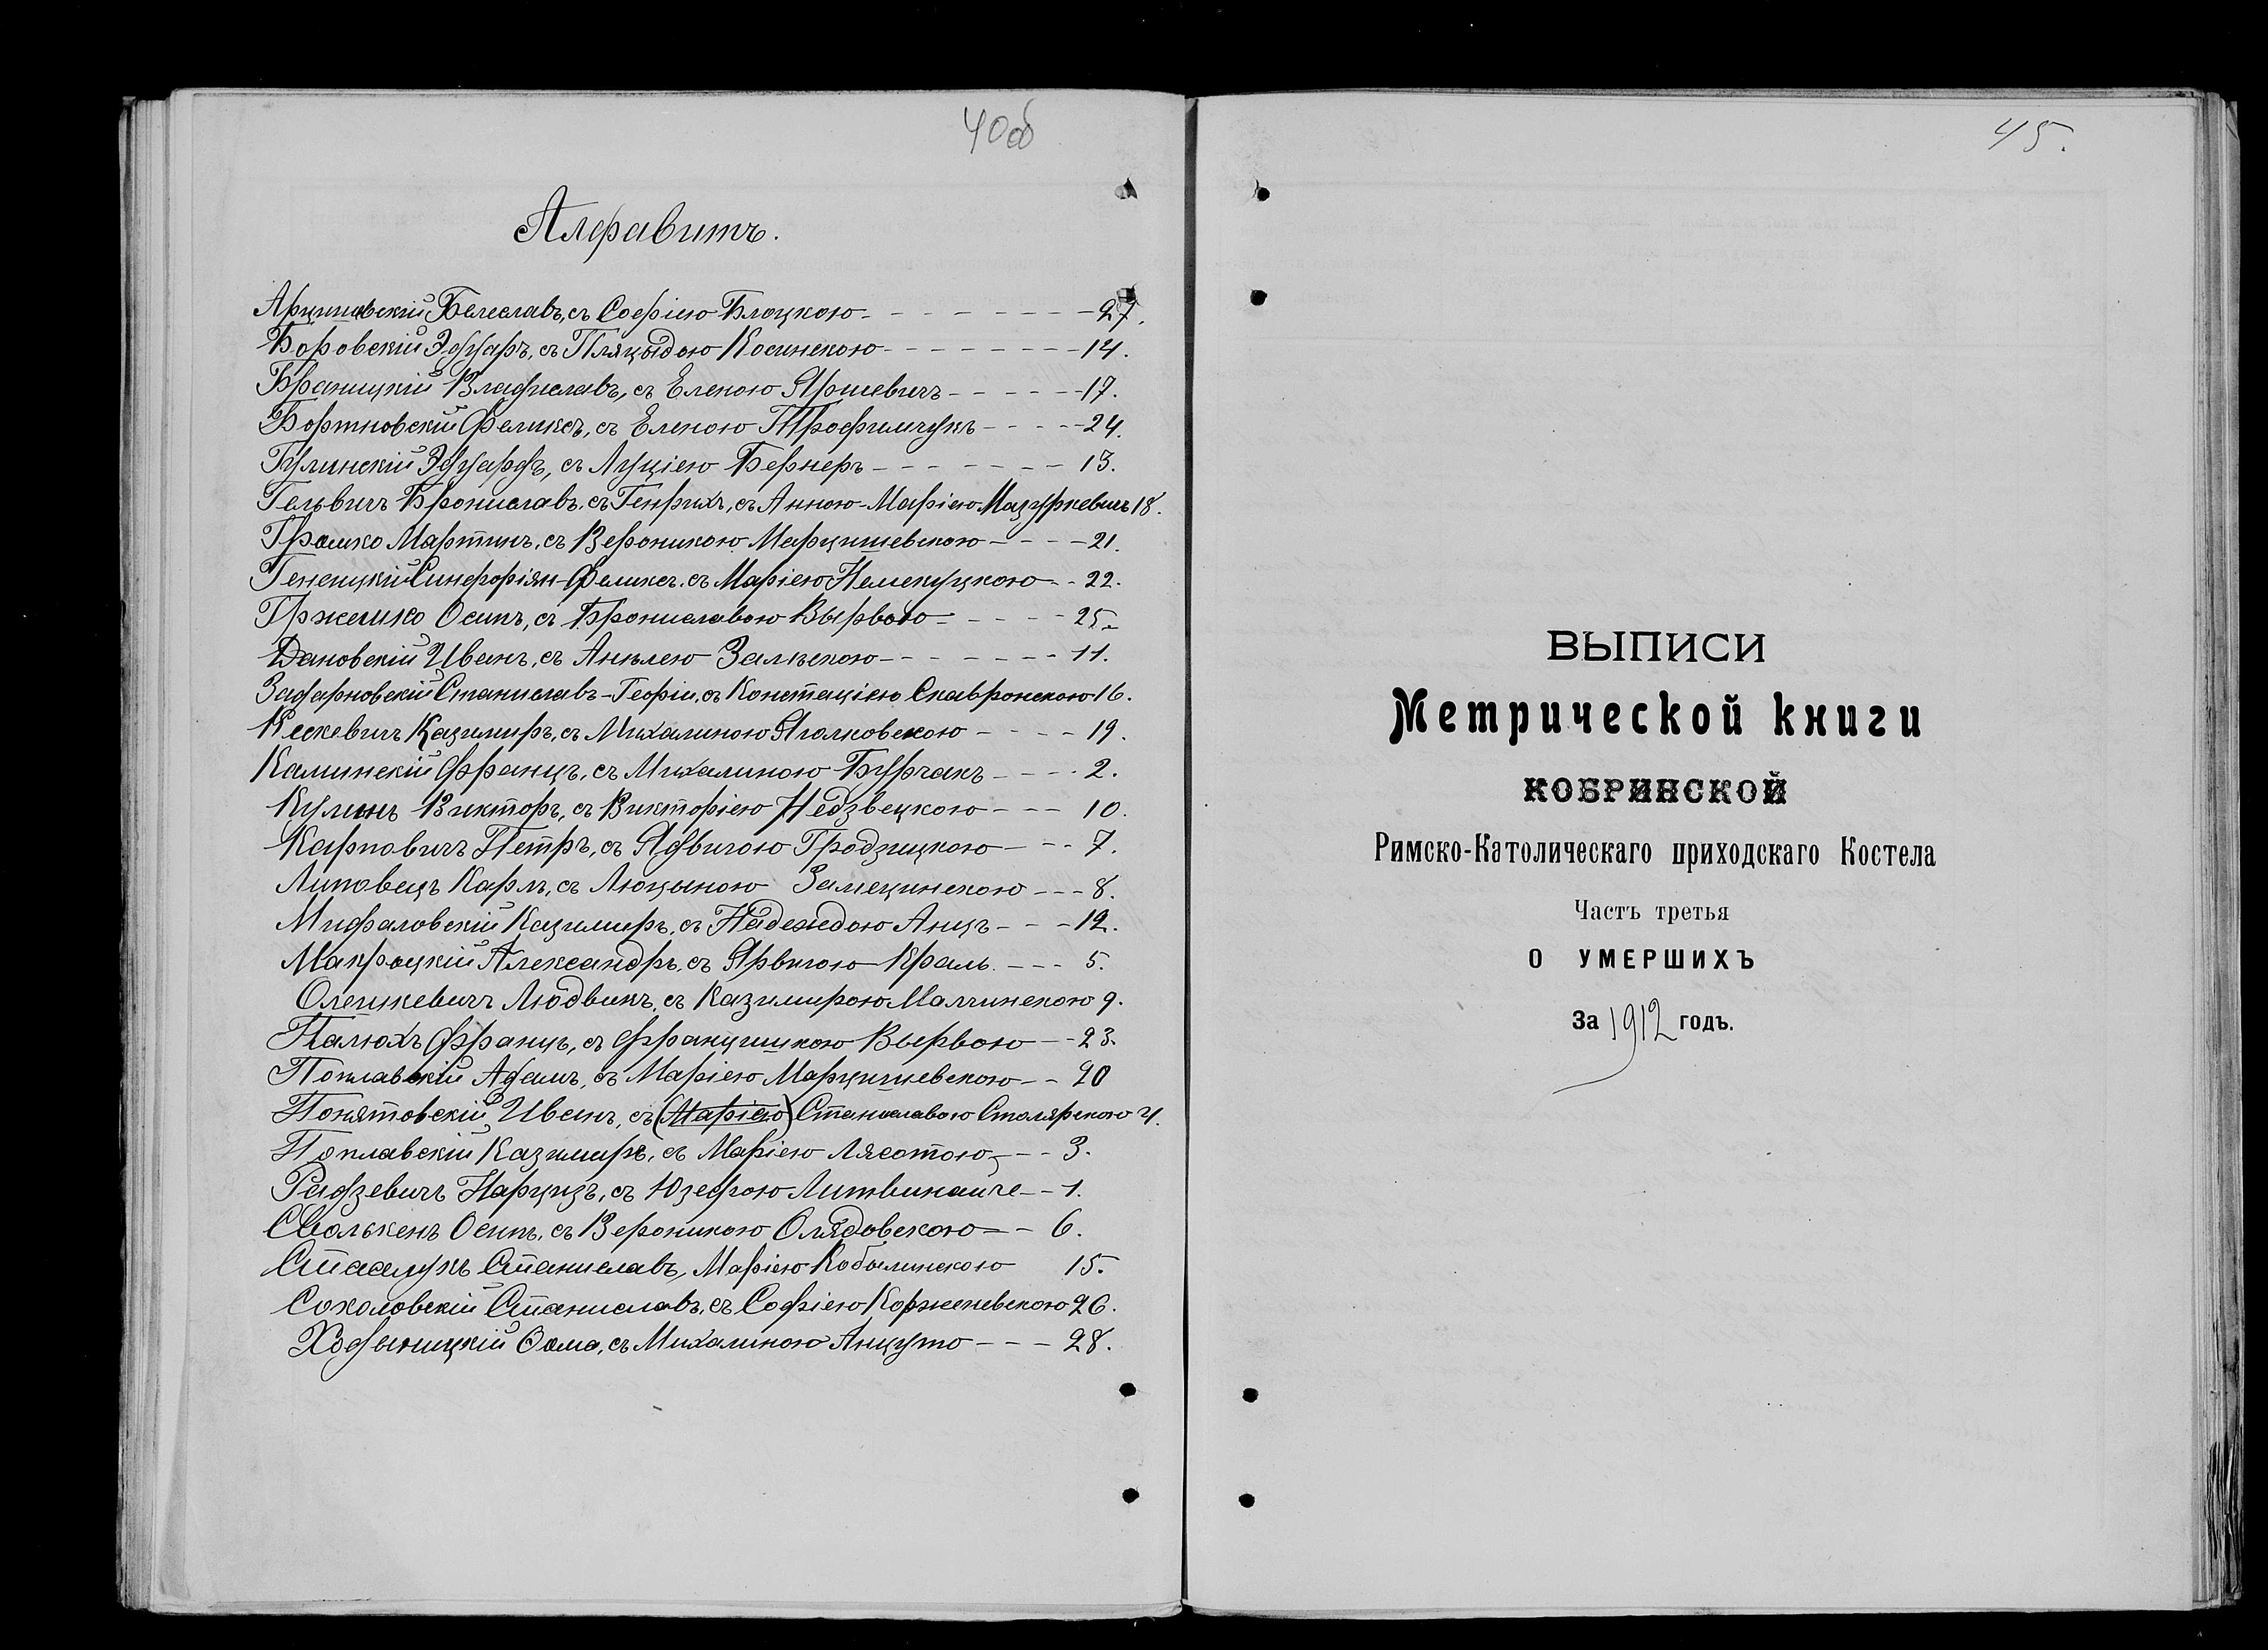 40об
Алфавитъ.
Арцишевскій Болеславъ, съ Софіею Блоцкою 27.
Боровскій Эдуаръ, съ Пляцыдою Косинскою 14.
Браницкій Владиславъ, съ Еленою Яршевичъ 17.
Бортновскій Феликсъ, съ Еленою Трофимчукъ 24.
Гулинскій Эдуардъ, съ Луціею Бернеръ 13.
Гельвичъ Брониславъ, съ Генрихъ, съ Анною-Маріею Мазуркевичъ 18.
Громко Мартинъ, съ Вероникою Марцишевскою 21.
Генецкій Синфоріян-Феликсъ, съ Маріею 22.
Гржешко Осипъ, съ Брониславою Вырвою 25.
Дановскій Иванъ, съ Анелею Залѣскою 11.
Задарновскій Станиславъ-Георгій, съ Констаціею Скавронскою 16.
Кескевичъ Казимиръ, съ Михалиною 19.
Калинскій Францъ, съ Михалиною Бурчакъ 2.
Кулинъ Викторъ, съ Викторіею Недзвецкою 10.
Карповичъ Петръ, съ Ядвигою Гродзицкою 7.
Липовецъ Карлъ, съ Люцыною 8.
Мифаловскій Казимиръ, съ Надеждою Анцъ 12.
Макроцкій Александръ, съ Ядвигою Краль 5.
Олешкевичъ Людвикъ, съ Казимирою Малчинскою 9.
Палюхъ Францъ, съ Францишкою Вырвою 23.
Поплавскій Адамъ, съ Маріею Марцишевскою 20
Понятовскій Иванъ, съ (Маріею) Станиславою Столярскою 4.
Поплавскій Казимиръ, съ Маріею Лясотою 3.
Радзевичъ Нарцизъ, съ Юзефою 1.
Сволькенъ Осипъ, съ Вероникою Олядовскою 6.
Стасюкъ Станиславъ, Маріею Кобылинскою 15.
Соколовскій Станиславъ, съ Софіею Корженевскою 26.
Ходыницкій Ѳома, съ Михалиною Анцуто 28.
45.
ВЫПИСИ
Метрической книги
КОБРИНСКОЙ
Римско-Католическаго приходскаго Костела
Часть третья
О УМЕРШИХЪ
За 1912 годъ.